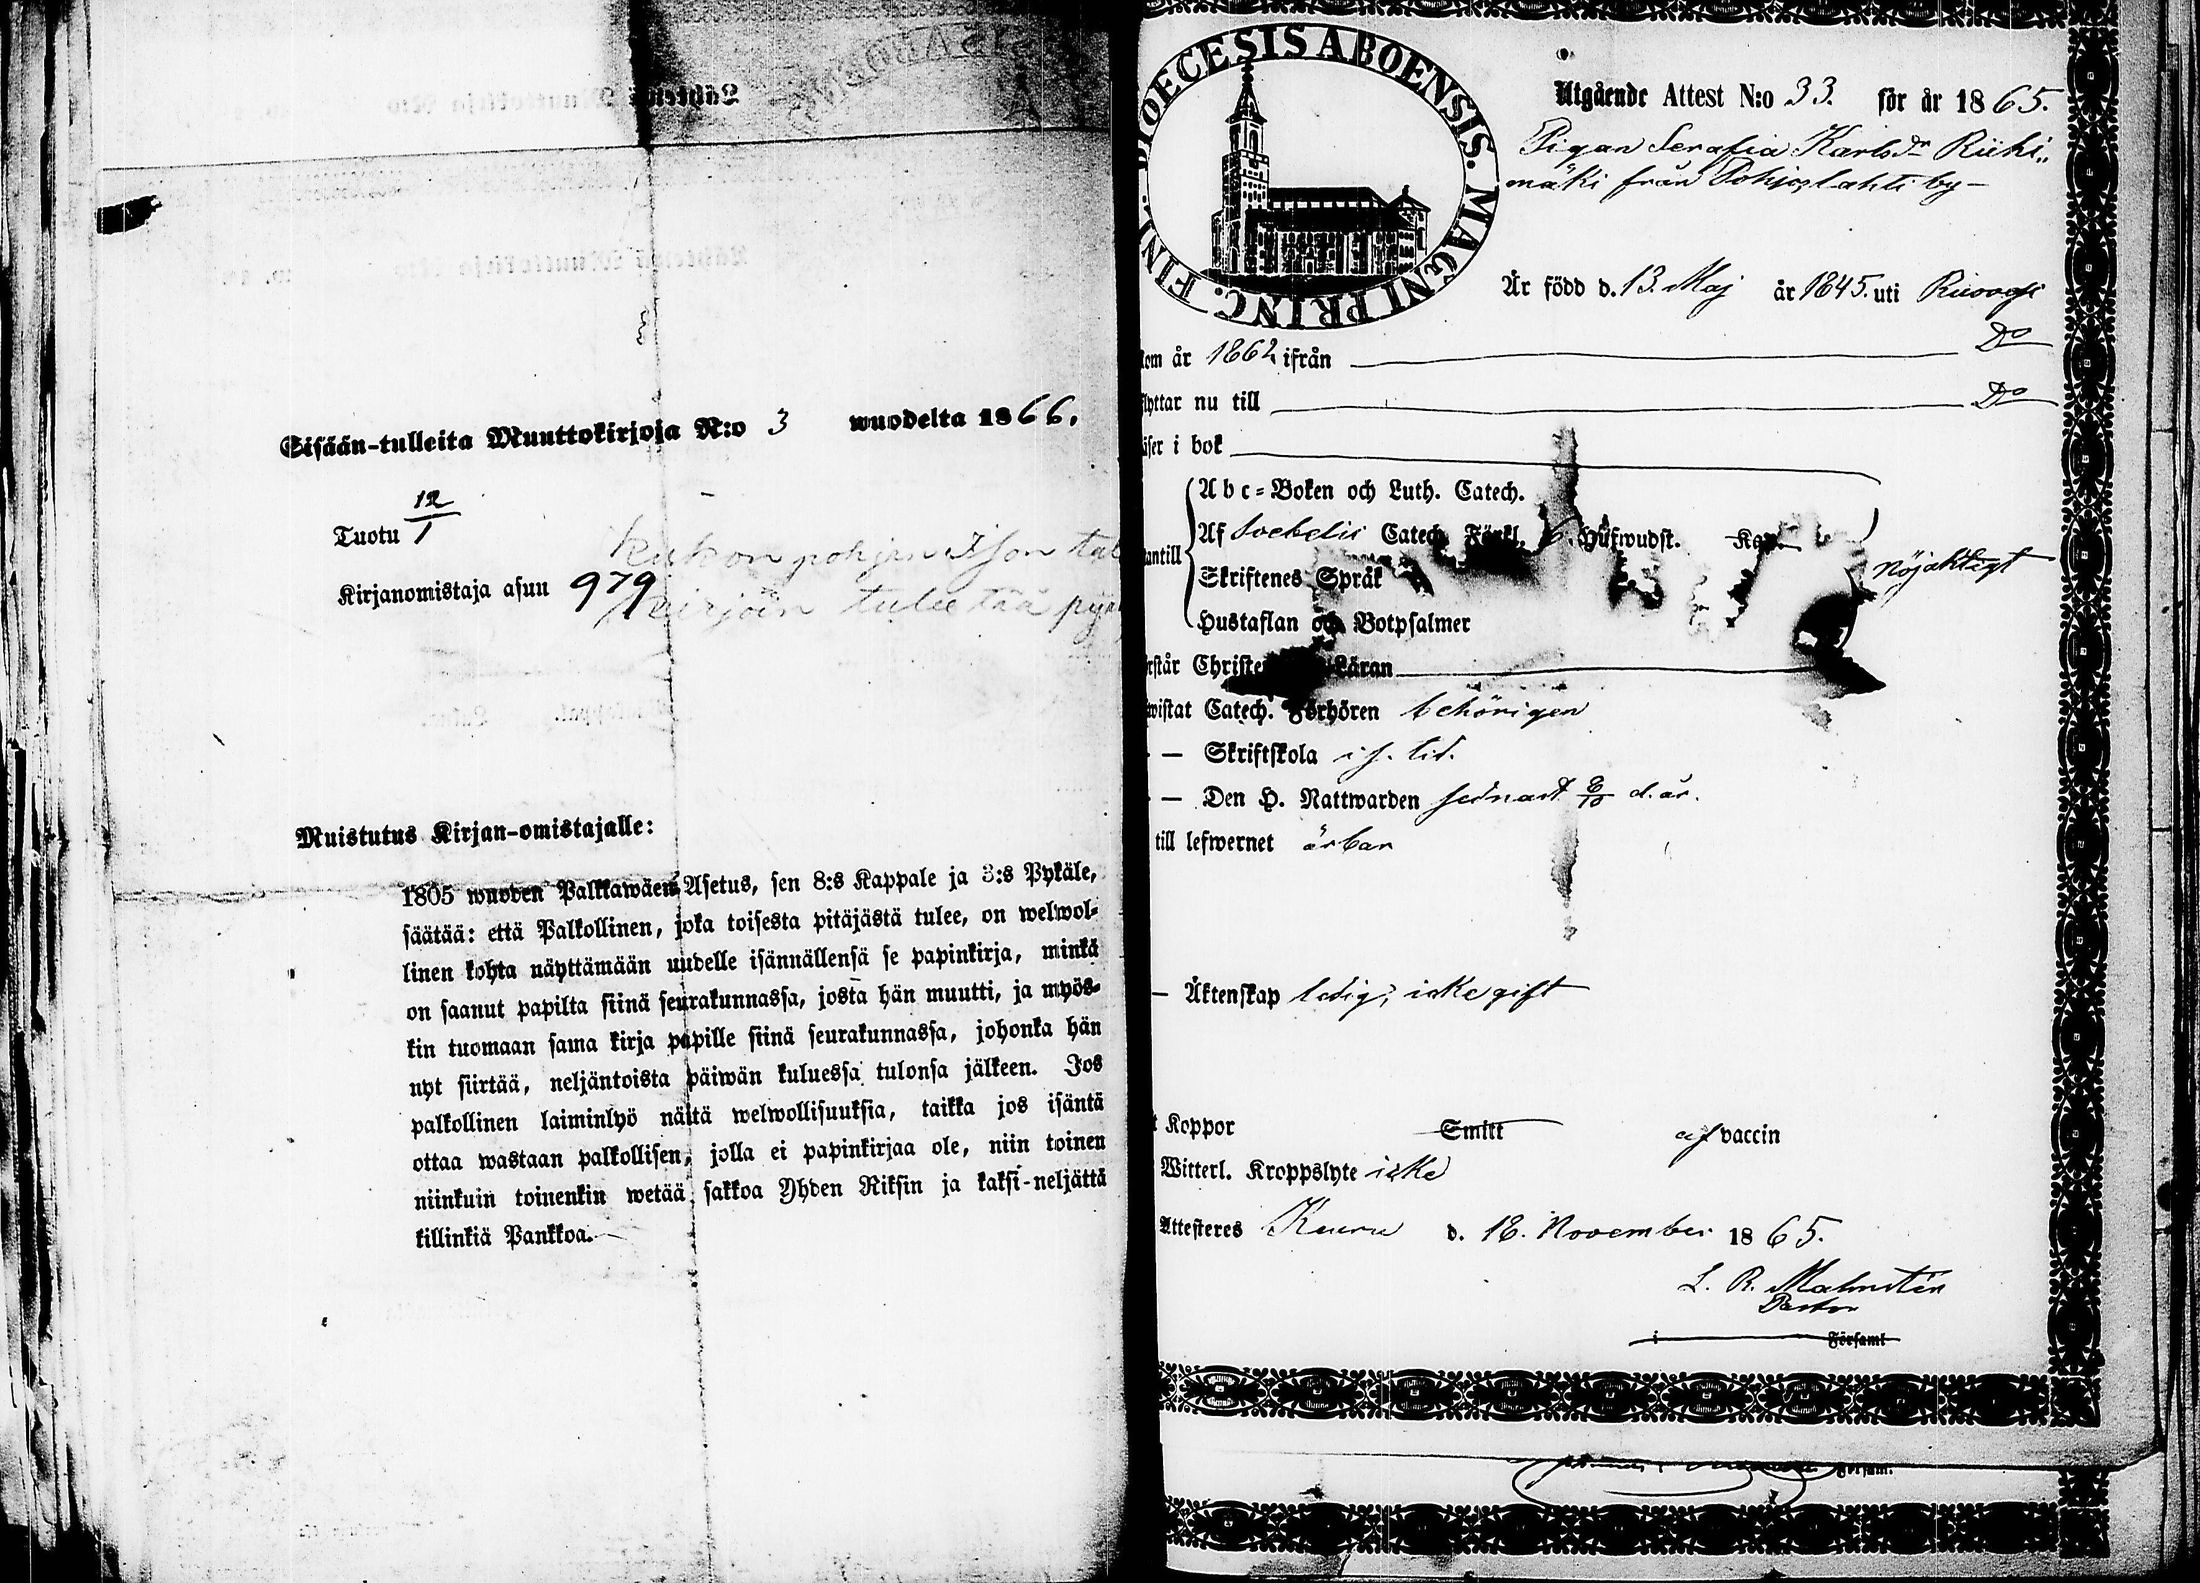 Sisään-tulleita Muuttokirjoja N:o 3 wuodelta 1866.
Tuotu 12/1
Kirjanomistaja asuu 979
pohjan Ison
kirjoin tulee tää
Muistutus Kirjan-omistajalle:
1805 wuoden Palkkawäen Asetus, sen 8:s Kappale ja 3:s Pykäle,
säätää: että Palkollinen, joka toisesta pitäjästä tulee, on welwol-
linen kohta näyttämään uudelle isännällensä se papinkirja, minkä
on saanut papilta siinä seurakunnassa, josta hän muutti, ja myös-
kin tuomaan sama kirja papille siinä seurakunnassa, johonka hän
nyt siirtää, neljäntoista päiwän kuluessa tulonsa jälkeen. Jos
palkollinen laiminlyö näitä welwollisuuksia, taikka jos isäntä
ottaa wastaan palkollisen, jolla ei papinkirjaa ole, niin toinen
niinkuin toinenkin wetää sakkoa Yhden Riksin ja kaksi-neljättä
killinkiä Pankkoa.
DIOECESIS ABOENSIS. MAGNI PRINC. FINL.
Utgående Attest N:o 33. för år 1865.
Pigan Serafia Karlsdr Riihi„
mäki från Pohjoslahti by–
Är född d. 13. Maj år 1845. uti Ruovesi
kom år 1862 ifrån Do
flyttar nu till Do
läser i bok
Abc-Boken och Luth. Catech.
Af Svebelii Catech. Förkl. 6. Hufwudst. Kap.
utantill
Skriftenes Språk
nöjaktigt
Hustaflan och Botpsalmer
förstår Christen Läran
bewistat Catech. Förhören behörigen
— Skriftskola i s. tid.
— Den H. Nattwarden sednast 8/10 d. år.
till lefwernet ärbar
— Äktenskap ledig; icke gift
Koppor Smitt af vaccin
Witterl. Kroppslyte icke
Attesteres Kuru d. 18. November 1865.
L. R. Malmstén
Pastor
i Församl
Församl.